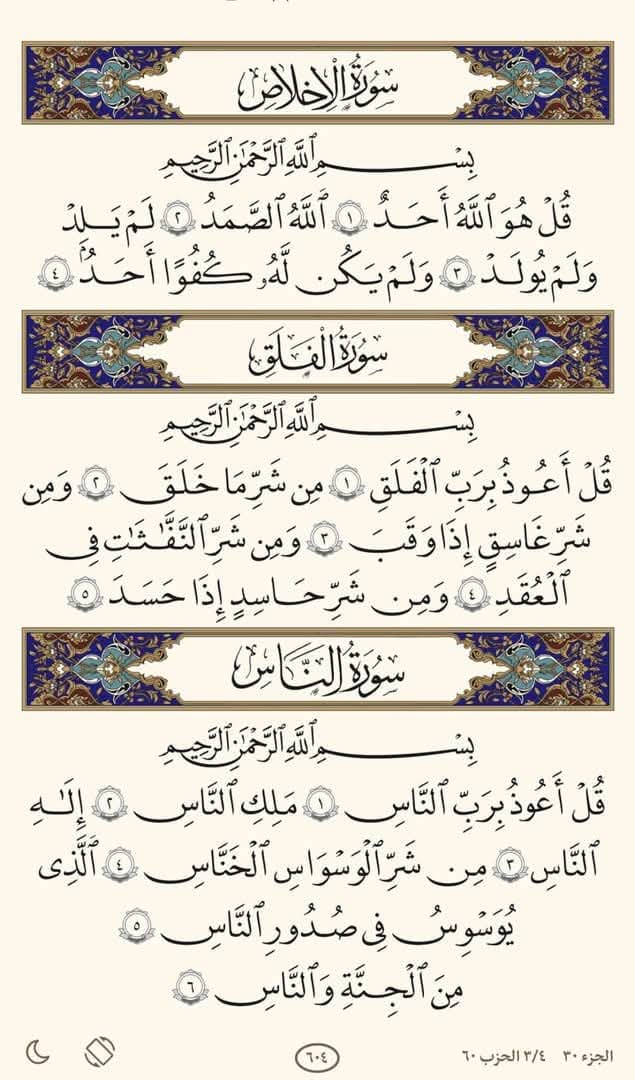 سُورَةُ الإِخْلَاصِ
بِسْمِ ٱللَّهِ ٱلرَّحْمَٰنِ ٱلرَّحِيمِ
قُلْ هُوَ ٱللَّهُ أَحَدٌ ١ ٱللَّهُ ٱلصَّمَدُ ٢ لَمْ يَلِدْ
وَلَمْ يُولَدْ ٣ وَلَمْ يَكُن لَّهُۥ كُفُوًا أَحَدُۢ ٤
سُورَةُ الْفَلَقِ
بِسْمِ ٱللَّهِ ٱلرَّحْمَٰنِ ٱلرَّحِيمِ
قُلْ أَعُوذُ بِرَبِّ ٱلْفَلَقِ ١ مِن شَرِّ مَا خَلَقَ ٢ وَمِن
شَرِّ غَاسِقٍ إِذَا وَقَبَ ٣ وَمِن شَرِّ ٱلنَّفَّٰثَٰتِ فِى
ٱلْعُقَدِ ٤ وَمِن شَرِّ حَاسِدٍ إِذَا حَسَدَ ٥
سُورَةُ النَّاسِ
بِسْمِ ٱللَّهِ ٱلرَّحْمَٰنِ ٱلرَّحِيمِ
قُلْ أَعُوذُ بِرَبِّ ٱلنَّاسِ ١ مَلِكِ ٱلنَّاسِ ٢ إِلَٰهِ
ٱلنَّاسِ ٣ مِن شَرِّ ٱلْوَسْوَاسِ ٱلْخَنَّاسِ ٤ ٱلَّذِى
يُوَسْوِسُ فِى صُدُورِ ٱلنَّاسِ ٥
مِنَ ٱلْجِنَّةِ وَٱلنَّاسِ ٦
الجزء ٣٠ ٣/٤ الحزب ٦٠
٦٠٤